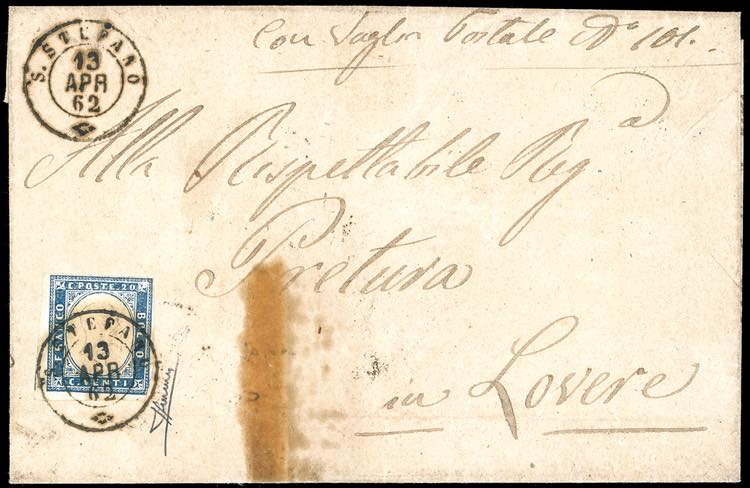 S. STEFANO
13
APR
62
Con Vaglia Postale N.º 101.
Alla Rispettabile Reg.ª
Pretura
in Lovere
C. POSTE. 20
FRANCO
BOLLO
C. VENTI
S. STEFANO
13
APR
62